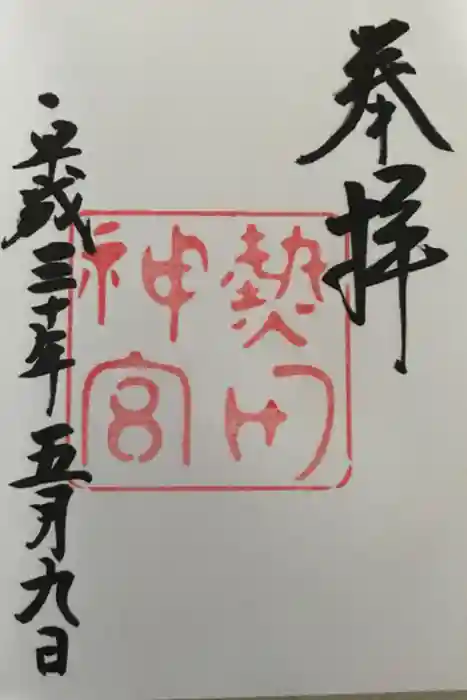 奉拝
熱田
神宮
平成三十年五月九日